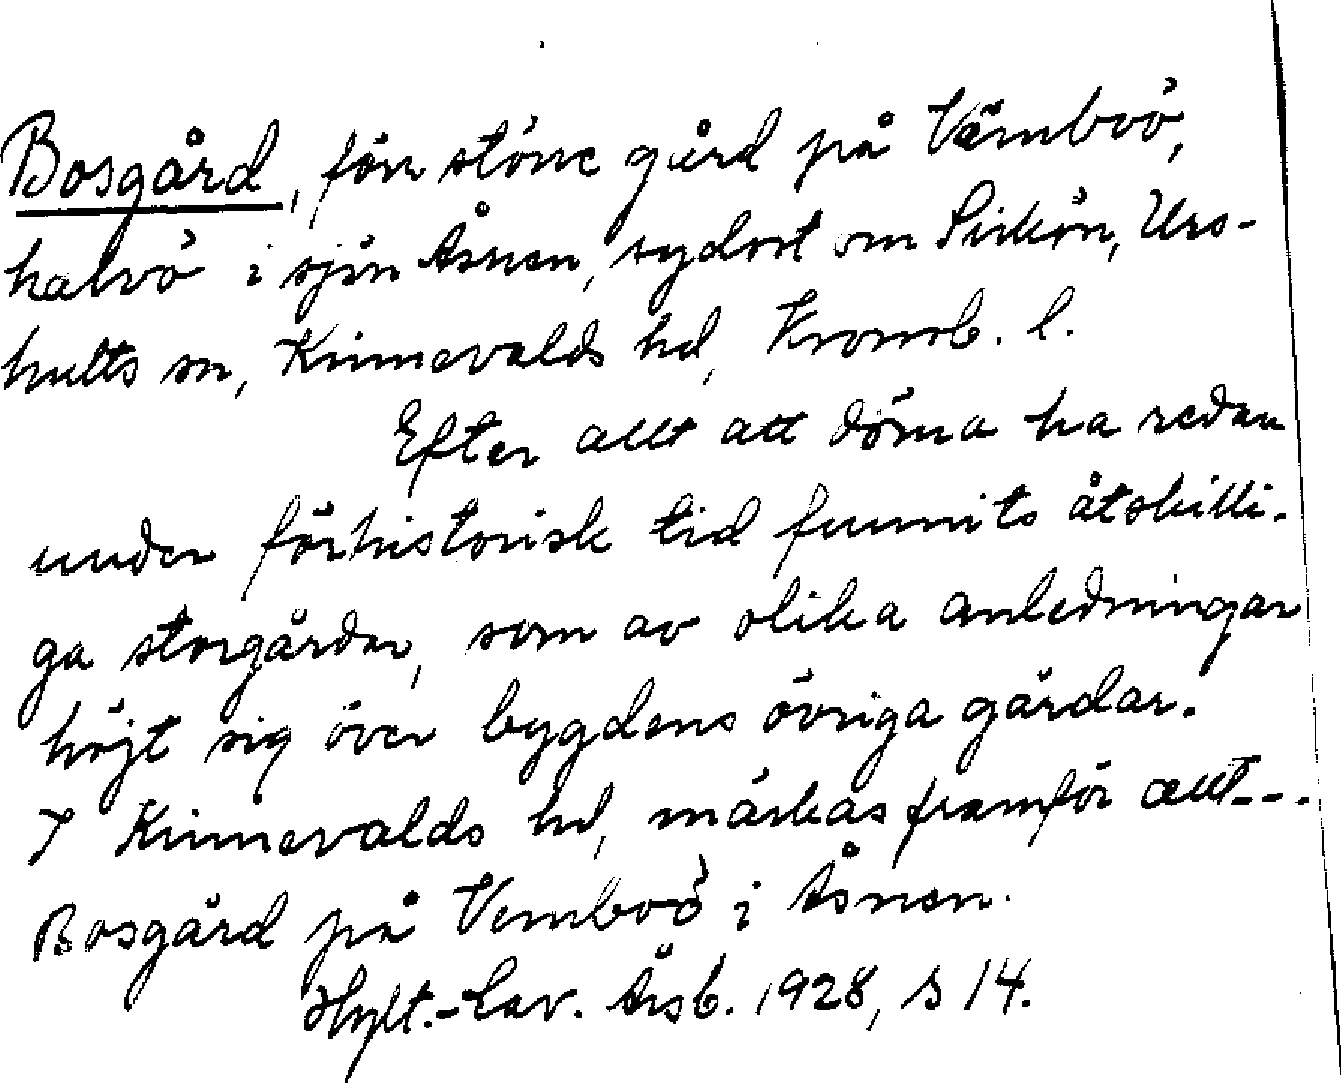 Bosgård, förr större gård på Vämboö,
halvö i sjön Åsnen, sydost om Sirkön, Urs-
hults sn, Kinnevalds hd, Kronob. l.
Efter allt att döma ha redan
under förhistorisk tid funnits åtskilli-
ga storgårdar, som av olika anledningar
höjt sig över bygdens övriga gårdar.
I Kinnevalds hd, märkas framför allt---
Bosgård på Vemboö i Åsnen.
Hylt.-Cav. Årsb. 1928, s 14.